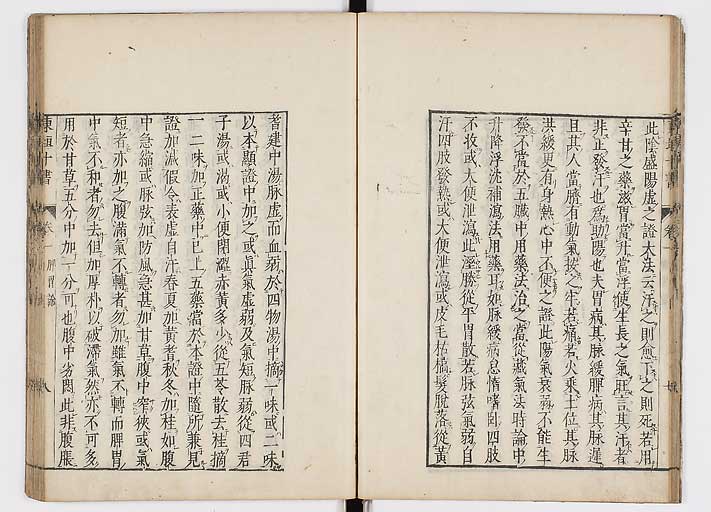 此陰盛陽虛之證大法云汗之則愈下之則死若用
辛甘之藥滋胃當升當浮使生長之氣旺言其汗者
非正發汗也為助陽也夫胃病其脉緩脾病其脉遲
且其人當臍有動氣按之牢若痛若火乗土位其脉
洪緩更有身熱心中不便之證此陽氣衰弱不能生
發不當於五臓中用藥法治之當從藏氣法時論中
升降浮沈補瀉法用藥耳如脉緩病怠惰嗜卧四肢
不收或大便泄瀉此濕勝從平胃散若脉弦氣弱自
汗四肢發熱或大便泄瀉或皮毛枯槁髪脫落從黃
耆建中湯脉虛而血弱於四物湯中摘一味或二味
以本顯證中加之或眞氣虛弱及氣短脉弱從四君
子湯或渴或小便閉澁赤黃多少從五苓散去桂摘
一二味加正藥中已上五藥當於本證中隨所兼見
證加減假令表虛自汗春夏加黃耆秋冬加桂如腹
中急縮或脉弦加防風急甚加甘草腹中窄狹或氣
短者亦加之腹滿氣不轉者勿加雖氣不轉而脾胃
中氣不和者勿去但加厚朴以破滯氣然亦不可多
用於甘草五分中加一分可也腹中夯悶此非腹脹
東垣十書
卷一
脾胃論